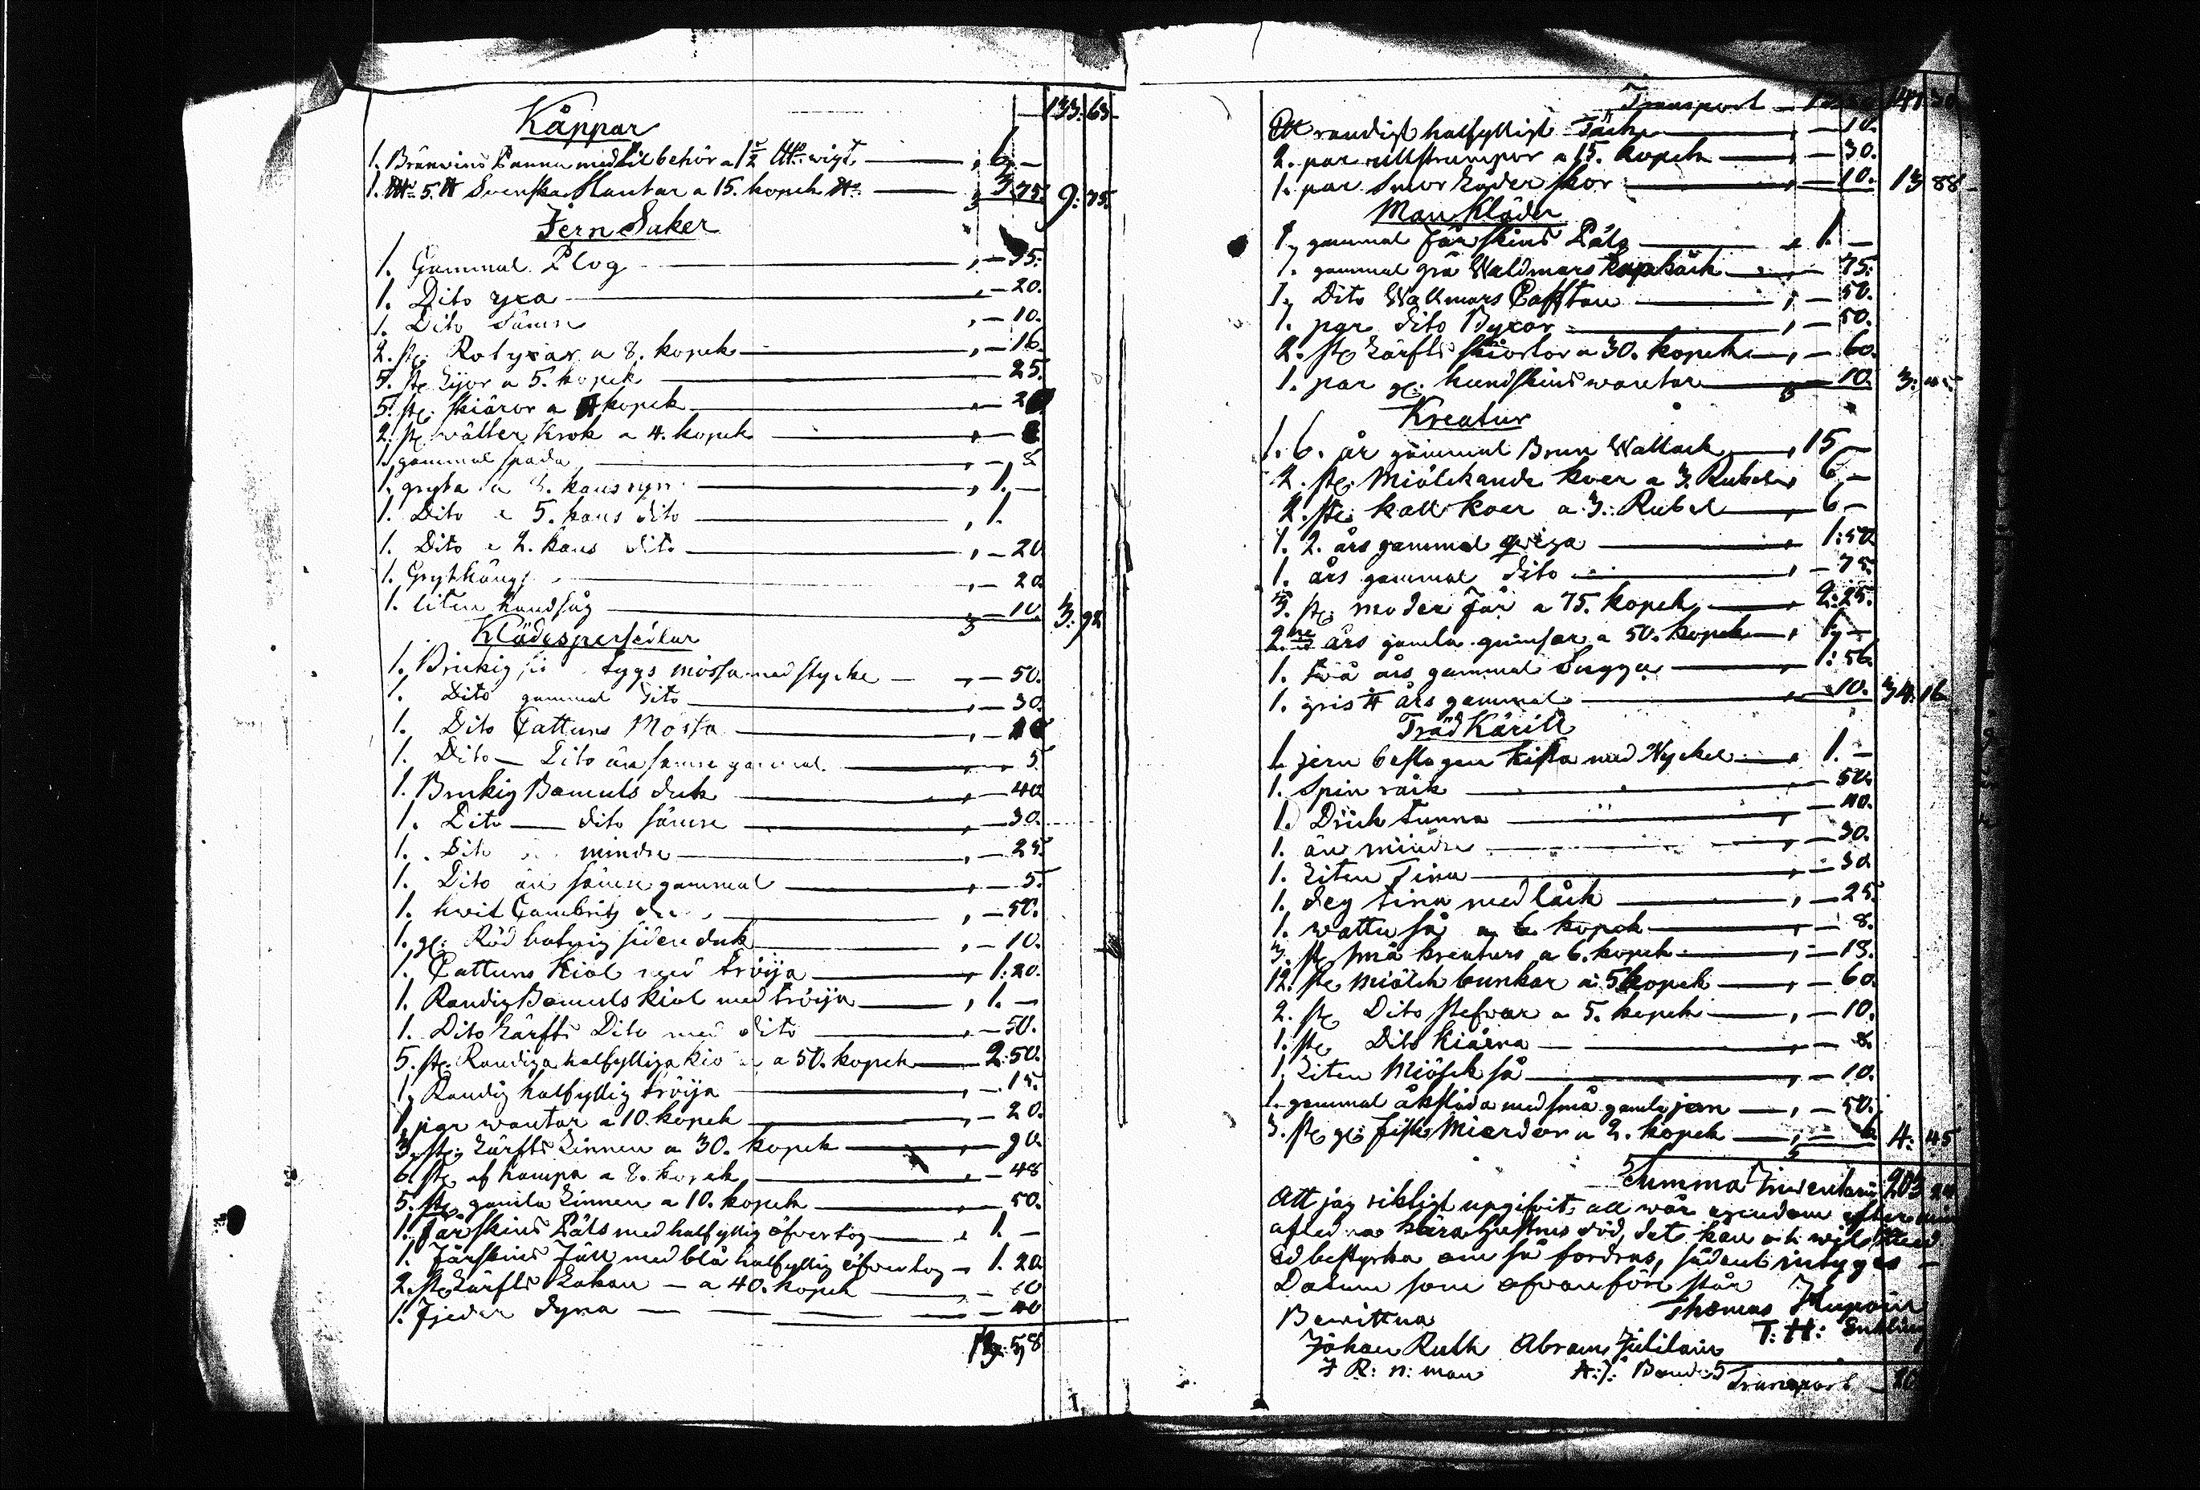 133: 63
Kåppar
1. Brännvins Panna med tilbehör a 1 1/2 wigt 6 –
1. 5. Svenska Slantar a 15. kopek 3 75. 9: 75.
Jern Saker
1. Gammal Plog – 35.
1. Dito yxa – 20.
1. Dito sämre – 10.
2. st. Rotyxar a 8. kopek – 16.
5. st. Lijor a 5. kopek 25.
5. st. skiäror a 4 kopek – 20
2. st. wälter krok a 4. kopek – 8
1. gammal spada – 8
1. gryta a 8. kans rym 1. –
1. Dito a 5. kans dito 1.
1. Dito a 2. kans dito – 20
1. Grythäng – 20
1. liten handsåg – 10. 3: 92
Klädespersedlar
1. Brukig tygs mössa med stycke – 50.
1. Dito gammal dito – 30.
1. Dito Cattuns Mössa – 10
1. Dito – Dito än sämre gammal 5.
1. Brukig Bomuls duk – 40
1. Dito – dito sämre – 30.
1. Dito mindre – 25.
1. Dito än sämre gammal – 5.
1. hwit Cambrits – 50.
1. gl: Röd botnig siden duk – 10.
1. Cattuns Kiol med tröija 1: 20.
1. Randig Bomuls kiol med tröija 1. –
1. Dito Lärfts Dito med dito – 50.
5. st. Randiga halfylliga a 50. kopek 2: 50.
1. Randig halfyllig tröija – 15.
1. par wantar a 10. kopek – 20.
3. st. Lärfts Linnen a 30. kopek – 90.
6. st. af hampa a 8. kopek – 48
5. st. gamla Linnen a 10. kopek – 50.
1. Fårskins Päls med halfyllig öfvertog 1. –
1. Fårskins Fäll med blå halfyllig öfvertog 1. 20
2. st. Lärfts Lakan – a 40. kopek – 80
1. Fjeder dyna – 40
13: 58
Transport
Ett randigt halfylligt Täcke – 10.
2. par ullstrumpor a 15. kopek – 30.
1. par Smorläder skor – 10. 13 88
Mans Kläder
1. gammal Fårskins Päls 1. –
1. gammal grå Waldmars kapråck – 75.
1. Dito Wallmars Cafftan – 50.
1. par dito Byxor – 50.
2. st. Lärfts skiortor a 30. kopek – 60.
1. par gl: hundskins wantar – 10. 3: 45
Kreatur
1. 6. år gammal Brun Wallack 15 –
2. st. Miölkande koer a 3. Rubel 6 –
2. st. kall koer a 3. Rubel 6 –
1. 2. års gammal qwiga 1: 50
1. års gammal dito – 75.
3. st. moder Får a 75. kopek 2: 25.
2 års gamla gumsar a 50. kopek 1. –
1. två års gammal Sugga 1: 56
1. gris 1/4 års gammal – 10. 34: 16
Träd Kärill
1. jern beslagen kista med Nyckel 1. –
1. Spin råck – 50.
1. Drick tunna – 40.
1. än mindre – 30.
1. Liten Tina – 30
1. deg tina med låck – 25.
1. wattu så a kopek – 8.
3. st. små kreaturs a 6. kopek – 18.
12. st. miölck bunkar a 5 kopek – 60
2. st. Dito stefvar a 5. kopek – 10.
1. st. Dito kiärna – 8.
1. Liten Miölck så – 10.
1. gammal åkslida med små gamla jern – 50.
3. st. gl: fisk Mierdor a 2. kopek – 6 4: 45
Summa Inventarii 203 24
Att jag riktigt upgifvit all wår egendom efter min
afledna kära hustrus död, det kan och wil med
Ed bestyrka om så fordras, sådant intyges –
Datum som ofvanföre står
Thomas
Bewittna T: H: Enkling
Johan Ruth Abram
J R: n: man A: J:
Transport